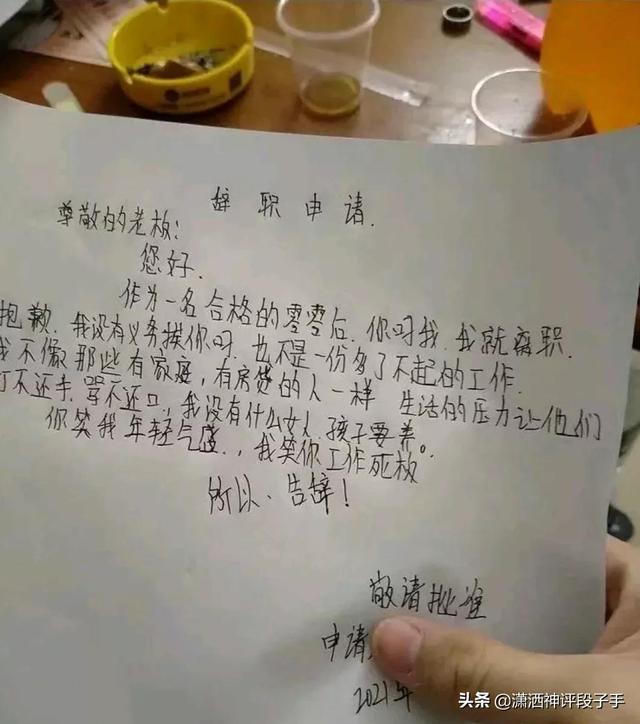 辞职申请.
尊敬的老板:
您好.
作为一名合格的零零后.你呵我.我就离职.
抱歉.我没有义务挨你呵.也不是一份多了不起的工作.
我不像那些有家庭,有房贷的人一样 生活的压力让他们
打不还手.骂不还口.我没有什么女人.孩子要养。
你笑我年轻气盛.,我笑你工作死板
所以、告辞!
敬请批准
申请
2021年
头条@潇洒神评段子手